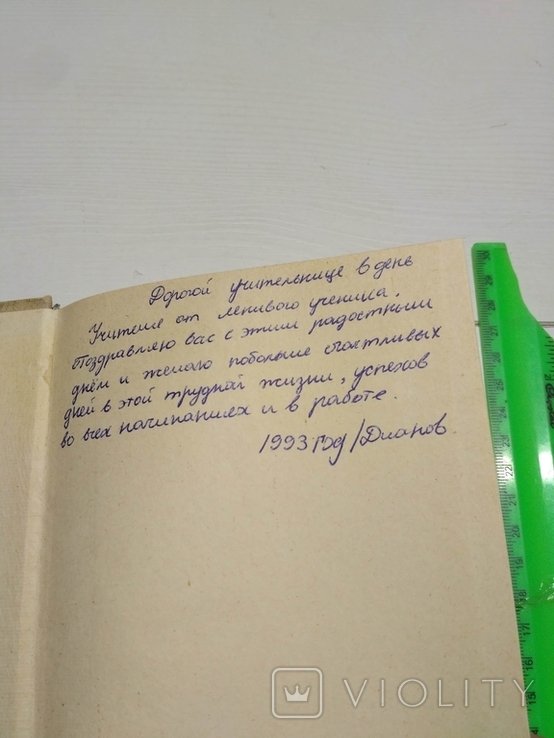 Дорогой учительнице в день
Учителя от ленивого ученика.
Поздравляю вас с этим радостным
днём и желаю побольше счастливых
дней в этой трудной жизни, успехов
во всех начинаниях и в работе.
1993 год /Дианов.
VIOLITY